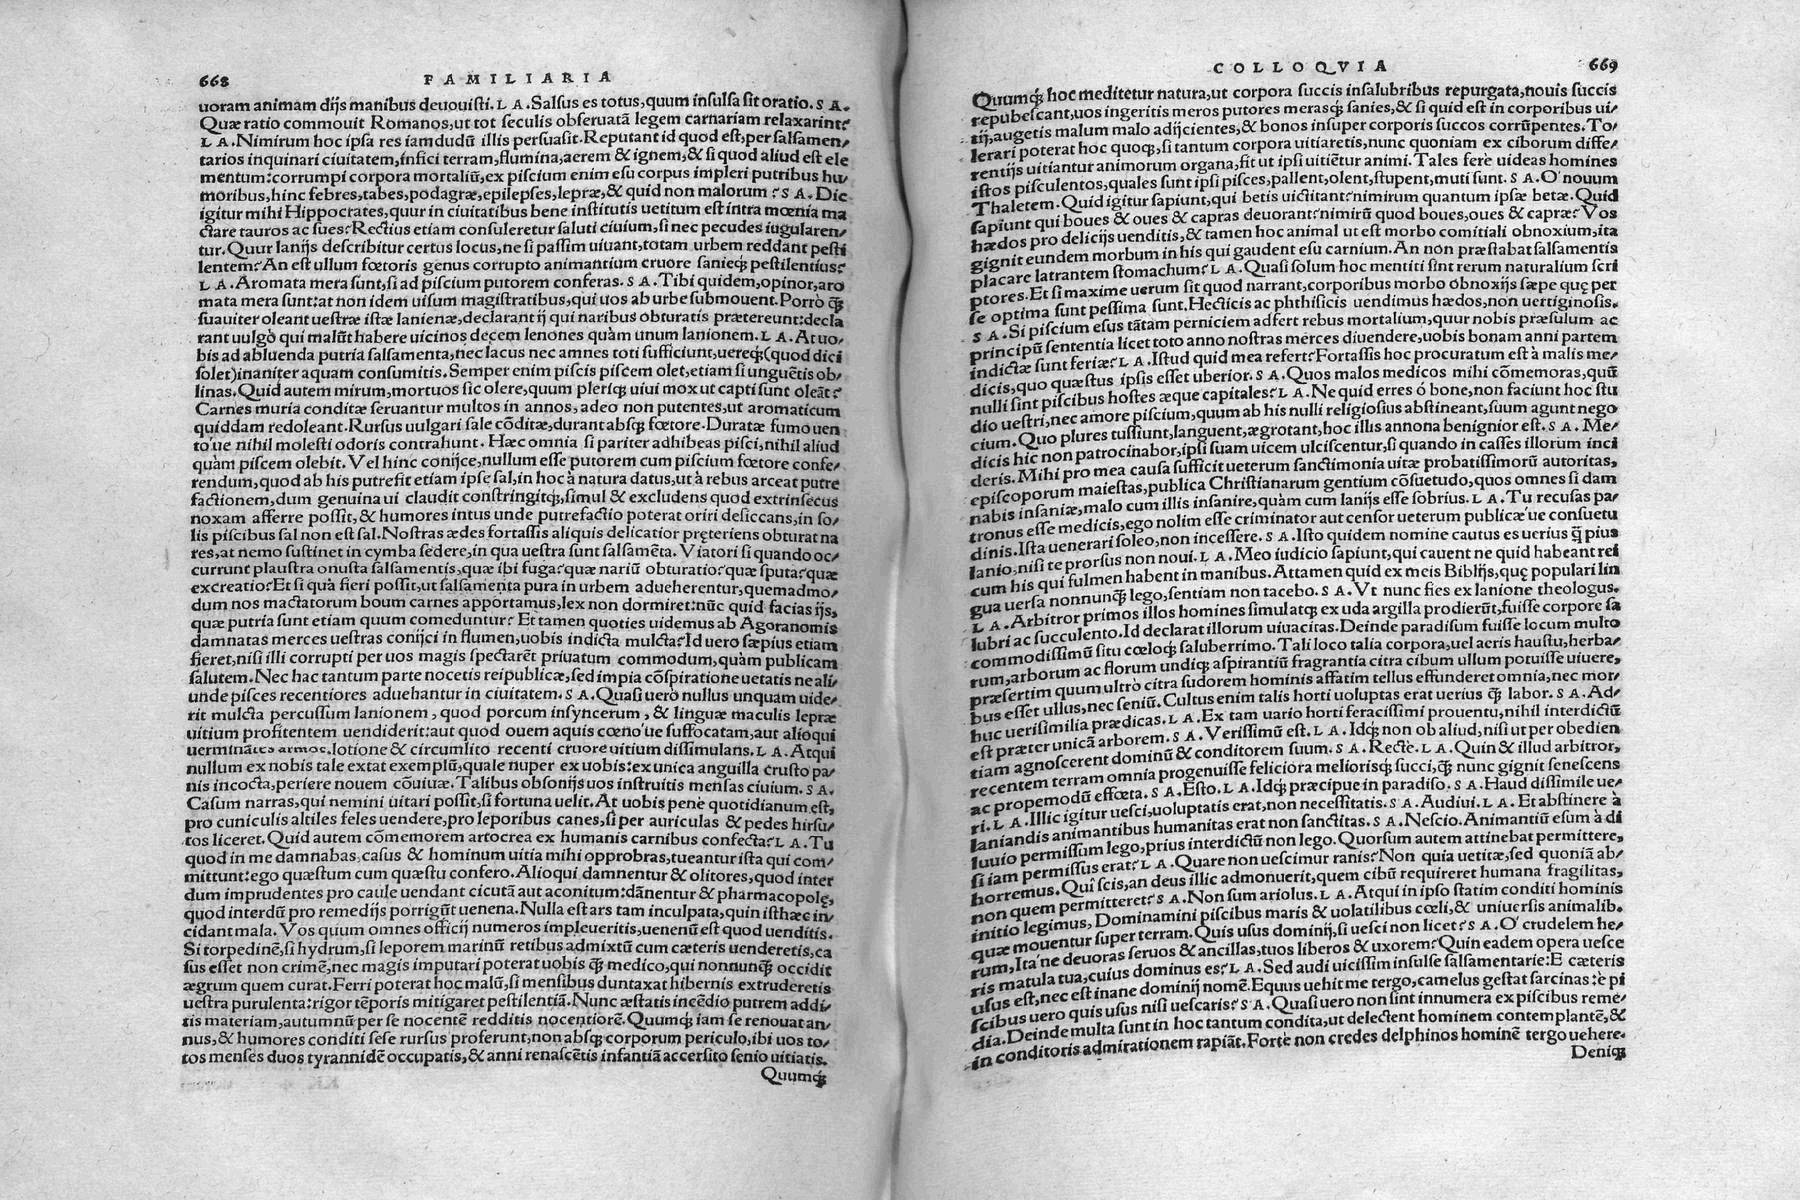 668 FAMILIARIA
uoram animam dijs manibus deuouisti. L A. Salsus es totus, quum insulsa sit oratio. S A.
Quæ ratio commouit Romanos, ut tot seculis obseruatā legem carnariam relaxarint?
L A. Nimirum hoc ipsa res iamdudū illis persuasit. Reputant id quod est, per salsamen/
tarios inquinari ciuitatem, infici terram, flumina, aerem & ignem, & si quod aliud est ele
mentum: corrumpi corpora mortaliū, ex piscium enim esu corpus impleri putribus hu/
moribus, hinc febres, tabes, podagræ, epilepses, lepræ, & quid non malorum? S A. Dic
igitur mihi Hippocrates, quur in ciuitatibus bene institutis uetitum est intra mœnia ma
ctare tauros ac sues? Rectius etiam consuleretur saluti ciuium, si nec pecudes iugularen/
tur. Quur lanijs describitur certus locus, ne si passim uiuant, totam urbem reddant pesti
lentem? An est ullum fœtoris genus corrupto animantium cruore sanieq́; pestilentius?
L A. Aromata mera sunt, si ad piscium putorem conferas. S A. Tibi quidem, opinor, aro
mata mera sunt: at non idem uisum magistratibus, qui uos ab urbe submouent. Porrò q̃
suauiter oleant uestræ istæ lanienæ, declarant ij qui naribus obturatis prætereunt: decla
rant uulgò qui malūt habere uicinos decem lenones quàm unum lanionem. L A. At uo/
bis ad abluenda putria salsamenta, nec lacus nec amnes toti sufficiunt, uereq́; (quod dici
solet) inaniter aquam consumitis. Semper enim piscis piscem olet, etiam si unguētis ob/
linas. Quid autem mirum, mortuos sic olere, quum pleriq; uiui mox ut capti sunt oleāt?
Carnes muria conditæ seruantur multos in annos, adeo non putentes, ut aromaticum
quiddam redoleant. Rursus uulgari sale cōditæ, durant absq; fœtore. Duratæ fumo uen
to'ue nihil molesti odoris contrahunt. Hæc omnia si pariter adhibeas pisci, nihil aliud
quàm piscem olebit. Vel hinc conijce, nullum esse putorem cum piscium fœtore confe/
rendum, quod ab his putrefit etiam ipse sal, in hoc à natura datus, ut à rebus arceat putre
factionem, dum genuina ui claudit constringitq́;, simul & excludens quod extrinsecus
noxam afferre possit, & humores intus unde putrefactio poterat oriri desiccans, in so/
lis piscibus sal non est sal. Nostras ædes fortassis aliquis delicatior pręteriens obturat na
res, at nemo sustinet in cymba sedere, in qua uestra sunt salsamēta. Viatori si quando oc/
currunt plaustra onusta salsamentis, quæ ibi fuga? quæ nariū obturatio? quæ sputa? quæ
excreatio? Et si quà fieri possit, ut salsamenta pura in urbem adueherentur, quemadmo/
dum nos mactatorum boum carnes apportamus, lex non dormiret: nūc quid facias ijs,
quæ putria sunt etiam quum comeduntur? Et tamen quoties uidemus ab Agoranomis
damnatas merces uestras conijci in flumen, uobis indicta mulcta? Id uero sæpius etiam
fieret, nisi illi corrupti per uos magis spectarēt priuatum commodum, quàm publicam
salutem. Nec hac tantum parte nocetis reipublicæ, sed impia cōspiratione uetatis ne ali/
unde pisces recentiores aduehantur in ciuitatem. S A. Quasi uerò nullus unquam uide/
rit mulcta percussum lanionem, quod porcum insyncerum, & linguæ maculis lepræ
uitium profitentem uendiderit: aut quod ouem aquis cœno'ue suffocatam, aut alioqui
uerminātes armos, lotione & circumlito recenti cruore uitium dissimulans. L A. Atqui
nullum ex nobis tale extat exemplū, quale nuper ex uobis: ex unica anguilla crusto pa/
nis incocta, periere nouem cōuiuæ. Talibus obsonijs uos instruitis mensas ciuium. S A.
Casum narras, qui nemini uitari possit, si fortuna uelit. At uobis penè quotidianum est,
pro cuniculis altiles feles uendere, pro leporibus canes, si per auriculas & pedes hirsu/
tos liceret. Quid autem cōmemorem artocrea ex humanis carnibus confecta? L A. Tu
quod in me damnabas, casus & hominum uitia mihi opprobras, tueantur ista qui com/
mittunt: ego quæstum cum quæstu confero. Alioqui damnentur & olitores, quod inter
dum imprudentes pro caule uendant cicutā aut aconitum: dānentur & pharmacopolę,
quod interdū pro remedijs porrigūt uenena. Nulla est ars tam inculpata, quin isthæc in/
cidant mala. Vos quium omnes officij numeros impleueritis, uenenū est quod uenditis.
Si torpedinē, si hydrum, si leporem marinū retibus admixtū cum cæteris uenderetis, ca
sus esset non crimē, nec magis imputari poterat uobis q̃ medico, qui nonnunq̃ occidit
ægrum quem curat. Ferri poterat hoc malū, si mensibus duntaxat hibernis extruderetis
uestra purulenta: rigor tēporis mitigaret pestilentiā. Nunc æstatis incēdio putrem addi/
tis materiam, autumnū per se nocentē redditis nocentiorē. Quumq́; iam se renouat an/
nus, & humores conditi sese rursus proferunt, non absq; corporum periculo, ibi uos to/
tos menses duos tyrannidē occupatis, & anni renascētis infantiā accersito senio uitiatis.
Quumq́;
COLLOQVIA 669
Quumq́; hoc meditetur natura, ut corpora succis insalubribus repurgata, nouis succis
repubescant, uos ingeritis meros putores merasq́; sanies, & si quid est in corporibus ui/
tij, augetis malum malo adijcientes, & bonos insuper corporis succos corrūpentes. To/
lerari poterat hoc quoq;, si tantum corpora uitiaretis, nunc quoniam ex ciborum diffe/
rentijs uitiantur animorum organa, fit ut ipsi uitiētur animi. Tales ferè uideas homines
istos pisculentos, quales sunt ipsi pisces, pallent, olent, stupent, muti sunt. S A. O' nouum
Thaletem. Quid igitur sapiunt, qui betis uictitant? nimirum quantum ipsæ betæ. Quid
sapiunt qui boues & oues & capras deuorant? nimirū quod boues, oues & capræ? Vos
hædos pro delicijs uenditis, & tamen hoc animal ut est morbo comitiali obnoxium, ita
gignit eundem morbum in his qui gaudent esu carnium. An non præstabat salsamentis
placare latrantem stomachum? L A. Quasi solum hoc mentiti sint rerum naturalium scri
ptores. Et si maxime uerum sit quod narrant, corporibus morbo obnoxijs sæpe quę per
se optima sunt pessima sunt. Hecticis ac phthisicis uendimus hædos, non uertiginosis.
S A. Si piscium esus tātam perniciem adfert rebus mortalium, quur nobis præsulum ac
principū sententia licet toto anno nostras merces diuendere, uobis bonam anni partem
indictæ sunt feriæ? L A. Istud quid mea refert? Fortassis hoc procuratum est à malis me/
dicis, quo quæstus ipsis esset uberior. S A. Quos malos medicos mihi cōmemoras, quū
nulli sint piscibus hostes æque capitales? L A. Ne quid erres ó bone, non faciunt hoc stu
dio uestri, nec amore piscium, quum ab his nulli religiosius abstineant, suum agunt nego
cium. Quo plures tussiunt, languent, ægrotant, hoc illis annona benignior est. S A. Me/
dicis hic non patrocinabor, ipsi suam uicem ulciscentur, si quando in casses illorum inci
deris. Mihi pro mea causa sufficit ueterum sanctimonia uitæ probatissimorū autoritas,
episcoporum maiestas, publica Christianarum gentium cōsuetudo, quos omnes si dam
nabis insaniæ, malo cum illis insanire, quàm cum lanijs esse sobrius. L A. Tu recusas pa/
tronus esse medicis, ego nolim esse criminator aut censor ueterum publicæ'ue consuetu
dinis. Ista uenerari soleo, non incessere. S A. Isto quidem nomine cautus es uerius q̃ pius
lanio, nisi te prorsus non noui. L A. Meo iudicio sapiunt, qui cauent ne quid habeant rei
cum his qui fulmen habent in manibus. Attamen quid ex meis Biblijs, quę populari lin
gua uersa nonnunq̃ lego, sentiam non tacebo. S A. Vt nunc fies ex lanione theologus.
L A. Arbitror primos illos homines simulatq; ex uda argilla prodierūt, fuisse corpore sa
lubri ac succulento. Id declarat illorum uiuacitas. Deinde paradisum fuisse locum multo
commodissimū situ cœloq́; saluberrimo. Tali loco talia corpora, uel aeris haustu, herba/
rum, arborum ac florum undiq; aspirantiū fragrantia citra cibum ullum potuisse uiuere,
præsertim quum ultrò citra sudorem hominis affatim tellus effunderet omnia, nec mor/
bus esset ullus, nec seniū. Cultus enim talis horti uoluptas erat uerius q̃ labor. S A. Ad/
huc uerisimilia prædicas. L A. Ex tam uario horti feracissimi prouentu, nihil interdictū
est præter unicā arborem. S A. Verissimū est. L A. Idq́; non ob aliud, nisi ut per obedien
tiam agnoscerent dominū & conditorem suum. S A. Recte. L A. Quin & illud arbitror,
recentem terram omnia progenuisse feliciora meliorisq́; succi, q̃ nunc gignit senescens
ac propemodū effœta. S A. Esto. L A. Idq́; præcipue in paradiso. S A. Haud dissimile ue/
ri. L A. Illic igitur uesci, uoluptatis erat, non necessitatis. S A. Audiui. L A. Et abstinere à
laniandis animantibus humanitas erat non sanctitas. S A. Nescio. Animantiū esum à di
luuio permissum lego, prius interdictū non lego. Quorsum autem attinebat permittere,
si iam permissus erat? L A. Quare non uescimur ranis? Non quia uetitæ, sed quoniā ab/
horremus. Quî scis, an deus illic admonuerit, quem cibū requireret humana fragilitas,
non quem permitteret? S A. Non sum ariolus. L A. Atqui in ipso statim conditi hominis
initio legimus, Dominamini piscibus maris & uolatilibus cœli, & uniuersis animalib.
quæ mouentur super terram. Quis usus dominij, si uesci non licet? S A. O' crudelem he/
rum, Ita'ne deuoras seruos & ancillas, tuos liberos & uxorem? Quin eadem opera uesce
ris matula tua, cuius dominus es? L A. Sed audi uicissim insulse salsamentarie: E cæteris
usus est, nec est inane dominij nomē. Equus uehit me tergo, camelus gestat sarcinas: è pi
scibus uero quis usus nisi uescaris? S A. Quasi uero non sint innumera ex piscibus reme/
dia. Deinde multa sunt in hoc tantum condita, ut delectent hominem contemplantē, &
in conditoris admirationem rapiāt. Forte non credes delphinos hominē tergo uehere.
Deniq́;